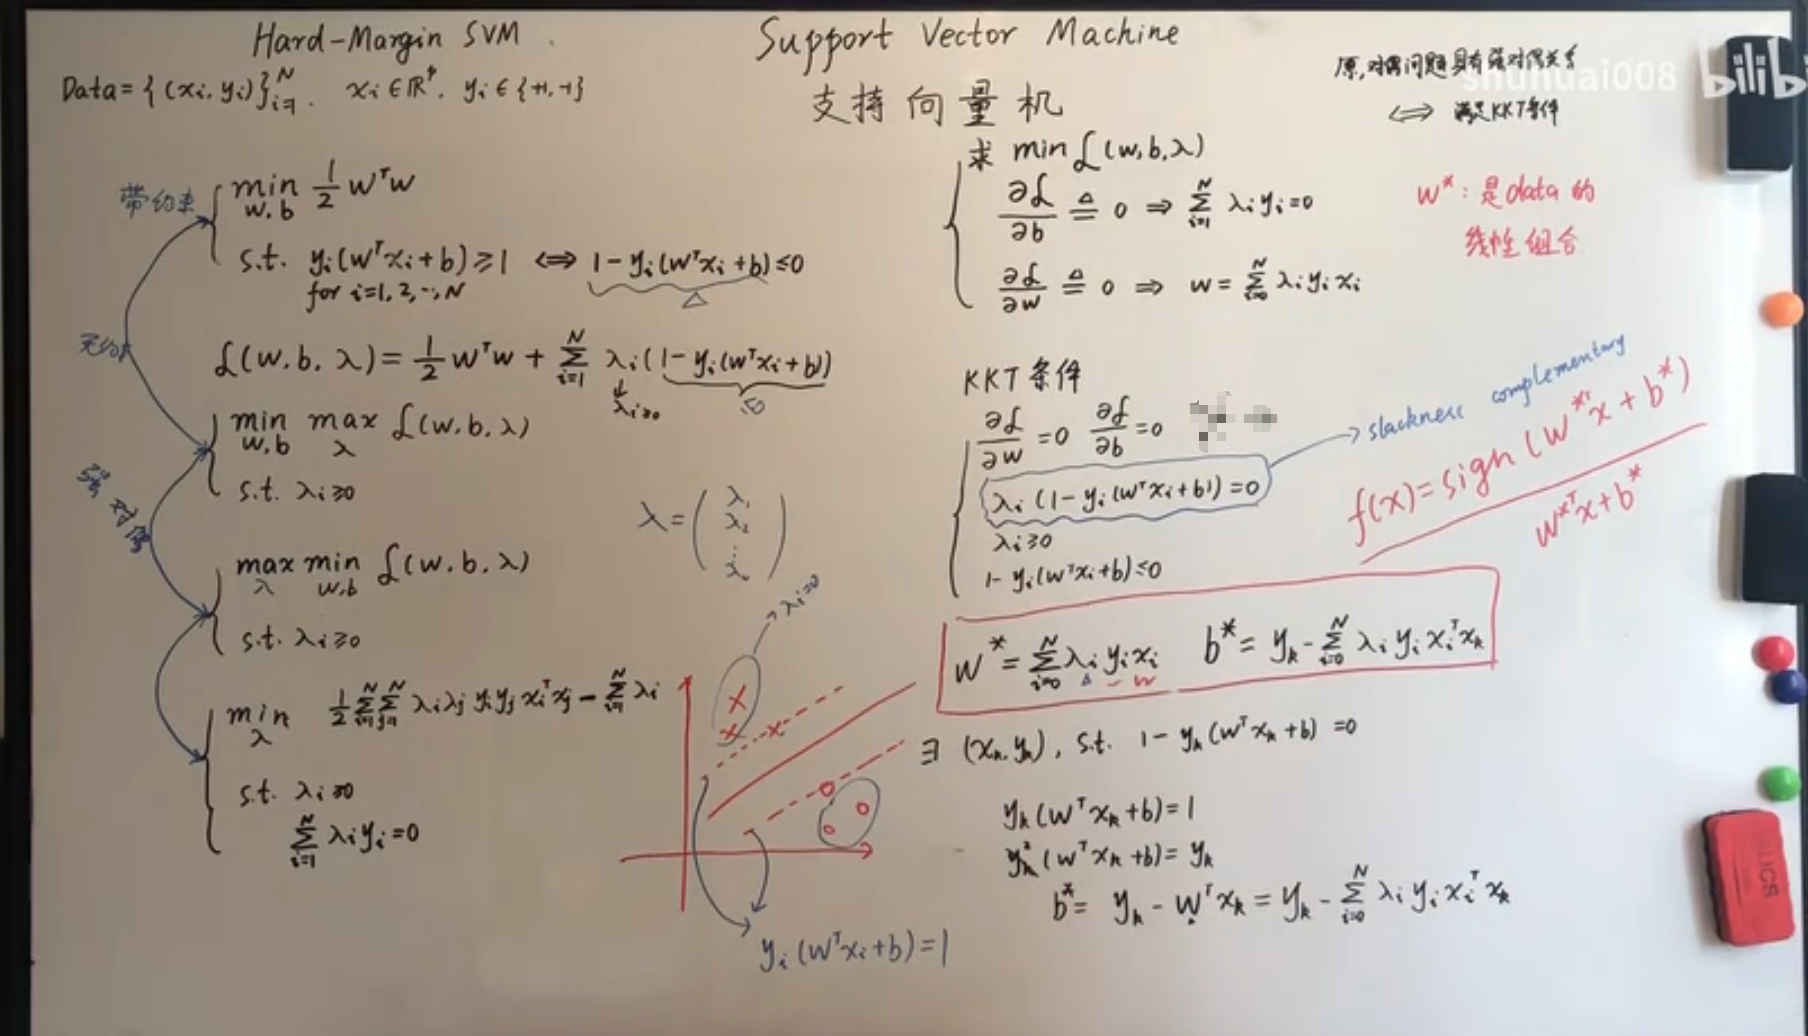 Hard-Margin SVM
Support Vector Machine
支持向量机
Data = {(xi, yi)}_{i=1}^N. xi ∈ ℝ^p, yi ∈ {+1, -1}
原,对偶问题具有强对偶关系
⟺ 满足KKT条件
shuhuai008 bilib
带约束
min_{w,b} 1/2 wᵀw
s.t. yi(wᵀxi+b) ≥ 1 ⟺ 1-yi(wᵀxi+b) ≤ 0
for i=1,2,…,N
△
无约束
L(w,b,λ) = 1/2 wᵀw + Σ_{i=1}^N λi(1-yi(wᵀxi+b))
λi≥0
≤0
min_{w,b} max_λ L(w,b,λ)
s.t. λi≥0
强对偶
max_λ min_{w,b} L(w,b,λ)
s.t. λi≥0
min_λ 1/2 Σ_{i=1}^N Σ_{j=1}^N λiλj yiyj xiᵀxj - Σ_{i=1}^N λi
s.t. λi≥0
Σ_{i=1}^N λiyi=0
λ = (λ1
λ2
⋮
)
λi=0
yi(wᵀxi+b)=1
求 min L(w,b,λ)
∂L/∂b ≜ 0 ⇒ Σ_{i=1}^N λiyi=0
∂L/∂w ≜ 0 ⇒ w = Σ_{i=0}^N λiyixi
w*: 是data的
线性组合
KKT条件
∂L/∂w =0 ∂L/∂b =0
λi(1-yi(wᵀxi+b))=0
slackness complementary
λi≥0
1-yi(wᵀxi+b)≤0
f(x)=sign(w*ᵀx+b*)
w*ᵀx+b*
w* = Σ_{i=0}^N λiyixi b* = yk - Σ_{i=0}^N λiyixiᵀxk
△ w
∃ (xk,yk), s.t. 1-yk(wᵀxk+b)=0
yk(wᵀxk+b)=1
yk²(wᵀxk+b)=yk
b* = yk - wᵀxk = yk - Σ_{i=0}^N λiyixiᵀxk